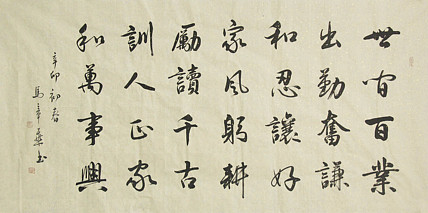 世間百業
出勤奮謙
和忍讓好
家風躬耕
勵讀千古
訓人正家
和萬事興
辛卯初春
馬